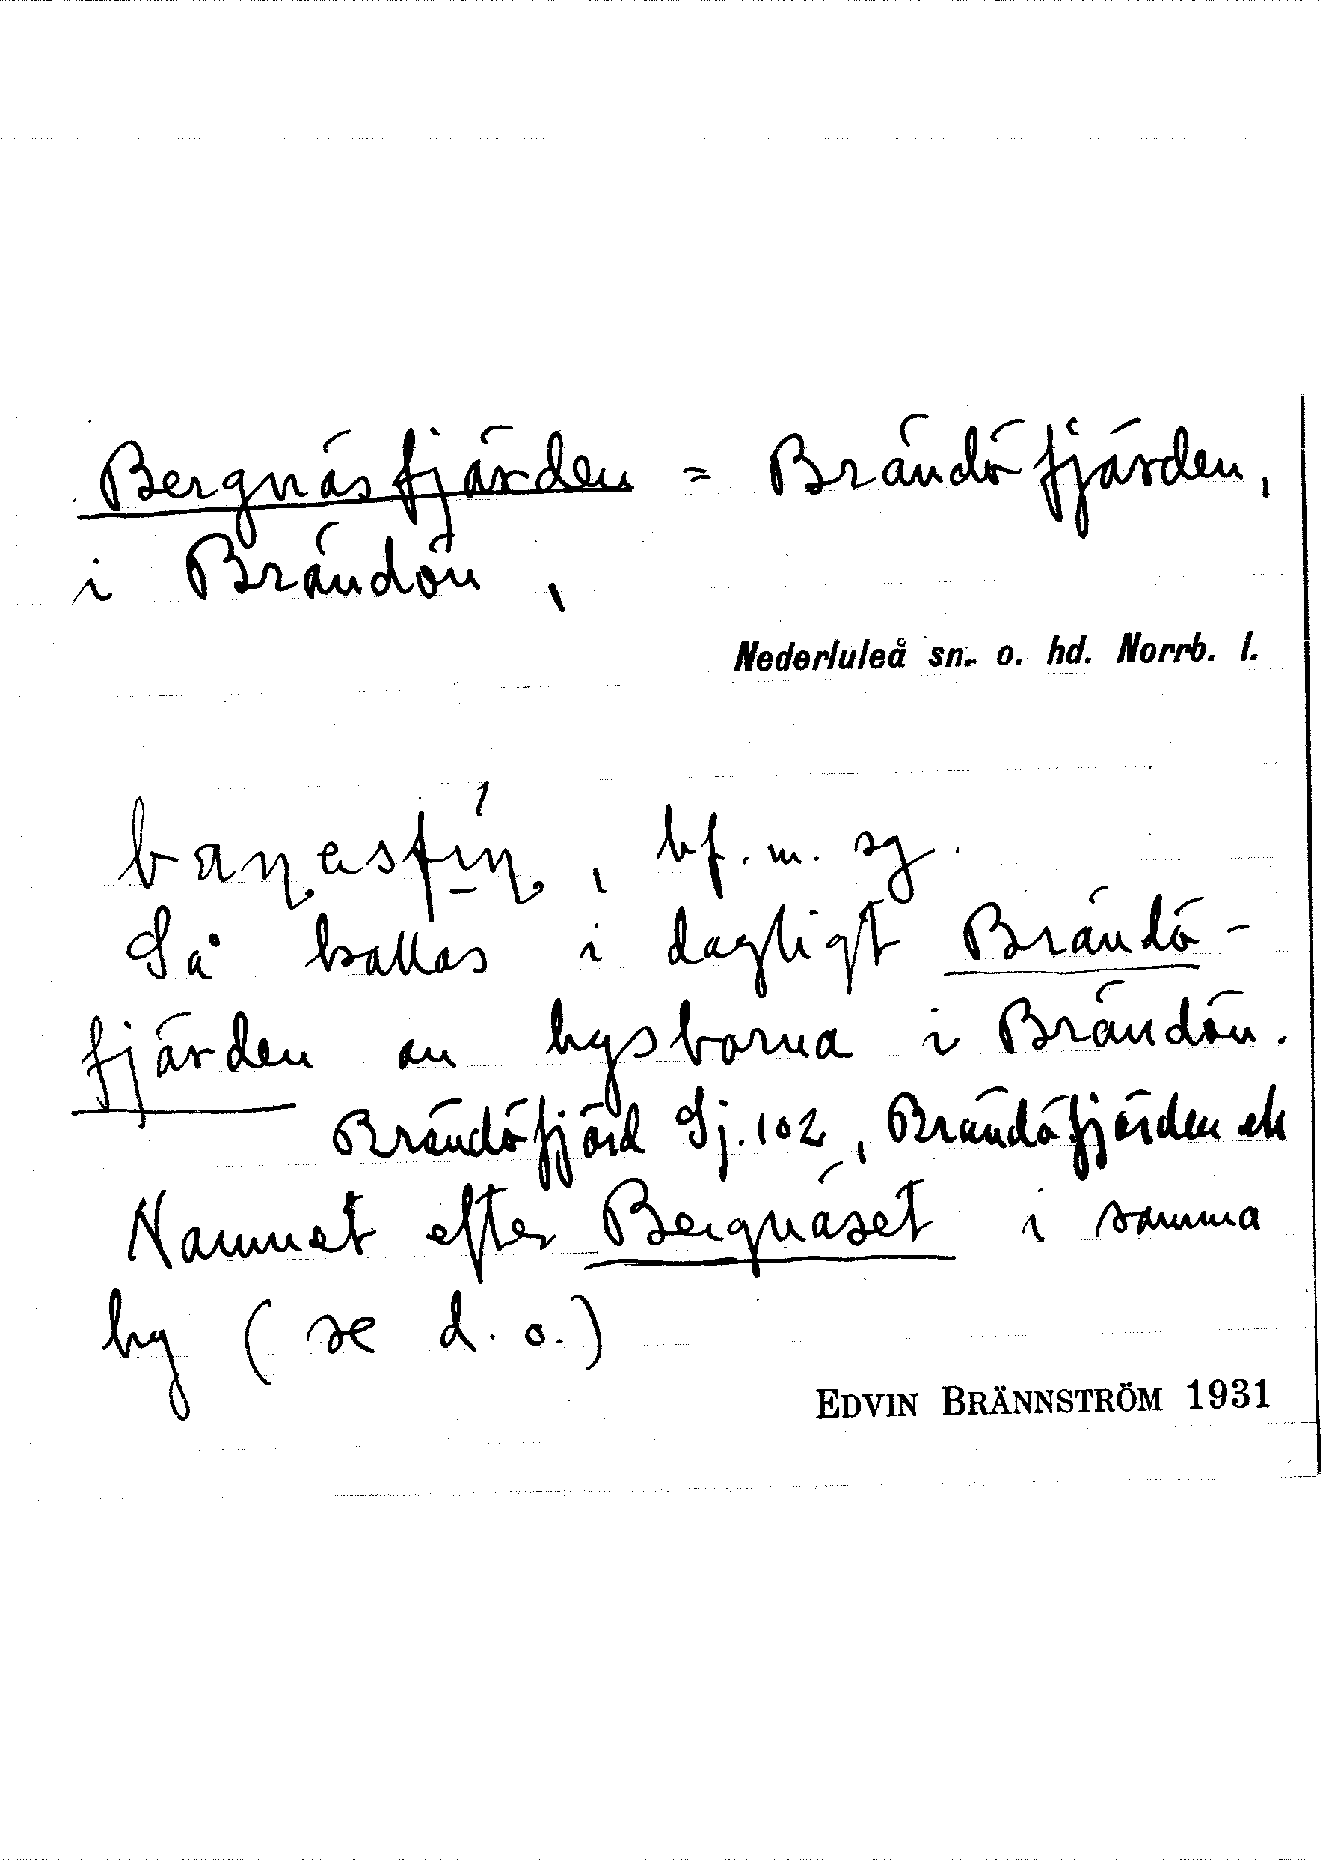 Bergnäsfjärden = Brändöfjärden,
i Brändön,
Nederluleå sn. o. hd. Norrb. l.
, bf. m. sg.
Så kallas i dagligt Brändö-
fjärden av bysborna i Brändön.
Brändöfjärd Sj. 102, Brändöfjärden ek
Namnet efter Bergnäset i samma
by (se d. o.)
EDVIN BRÄNNSTRÖM 1931